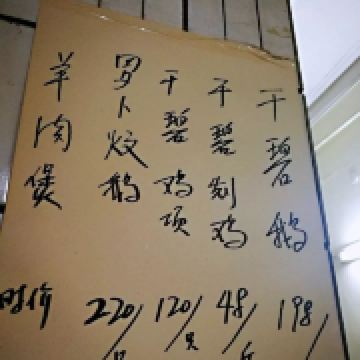 羊肉煲
罗卜炆鹅
干碧鸡项
干碧鸡
干碧鹅
时价
220/只
120/只
48/斤
198/